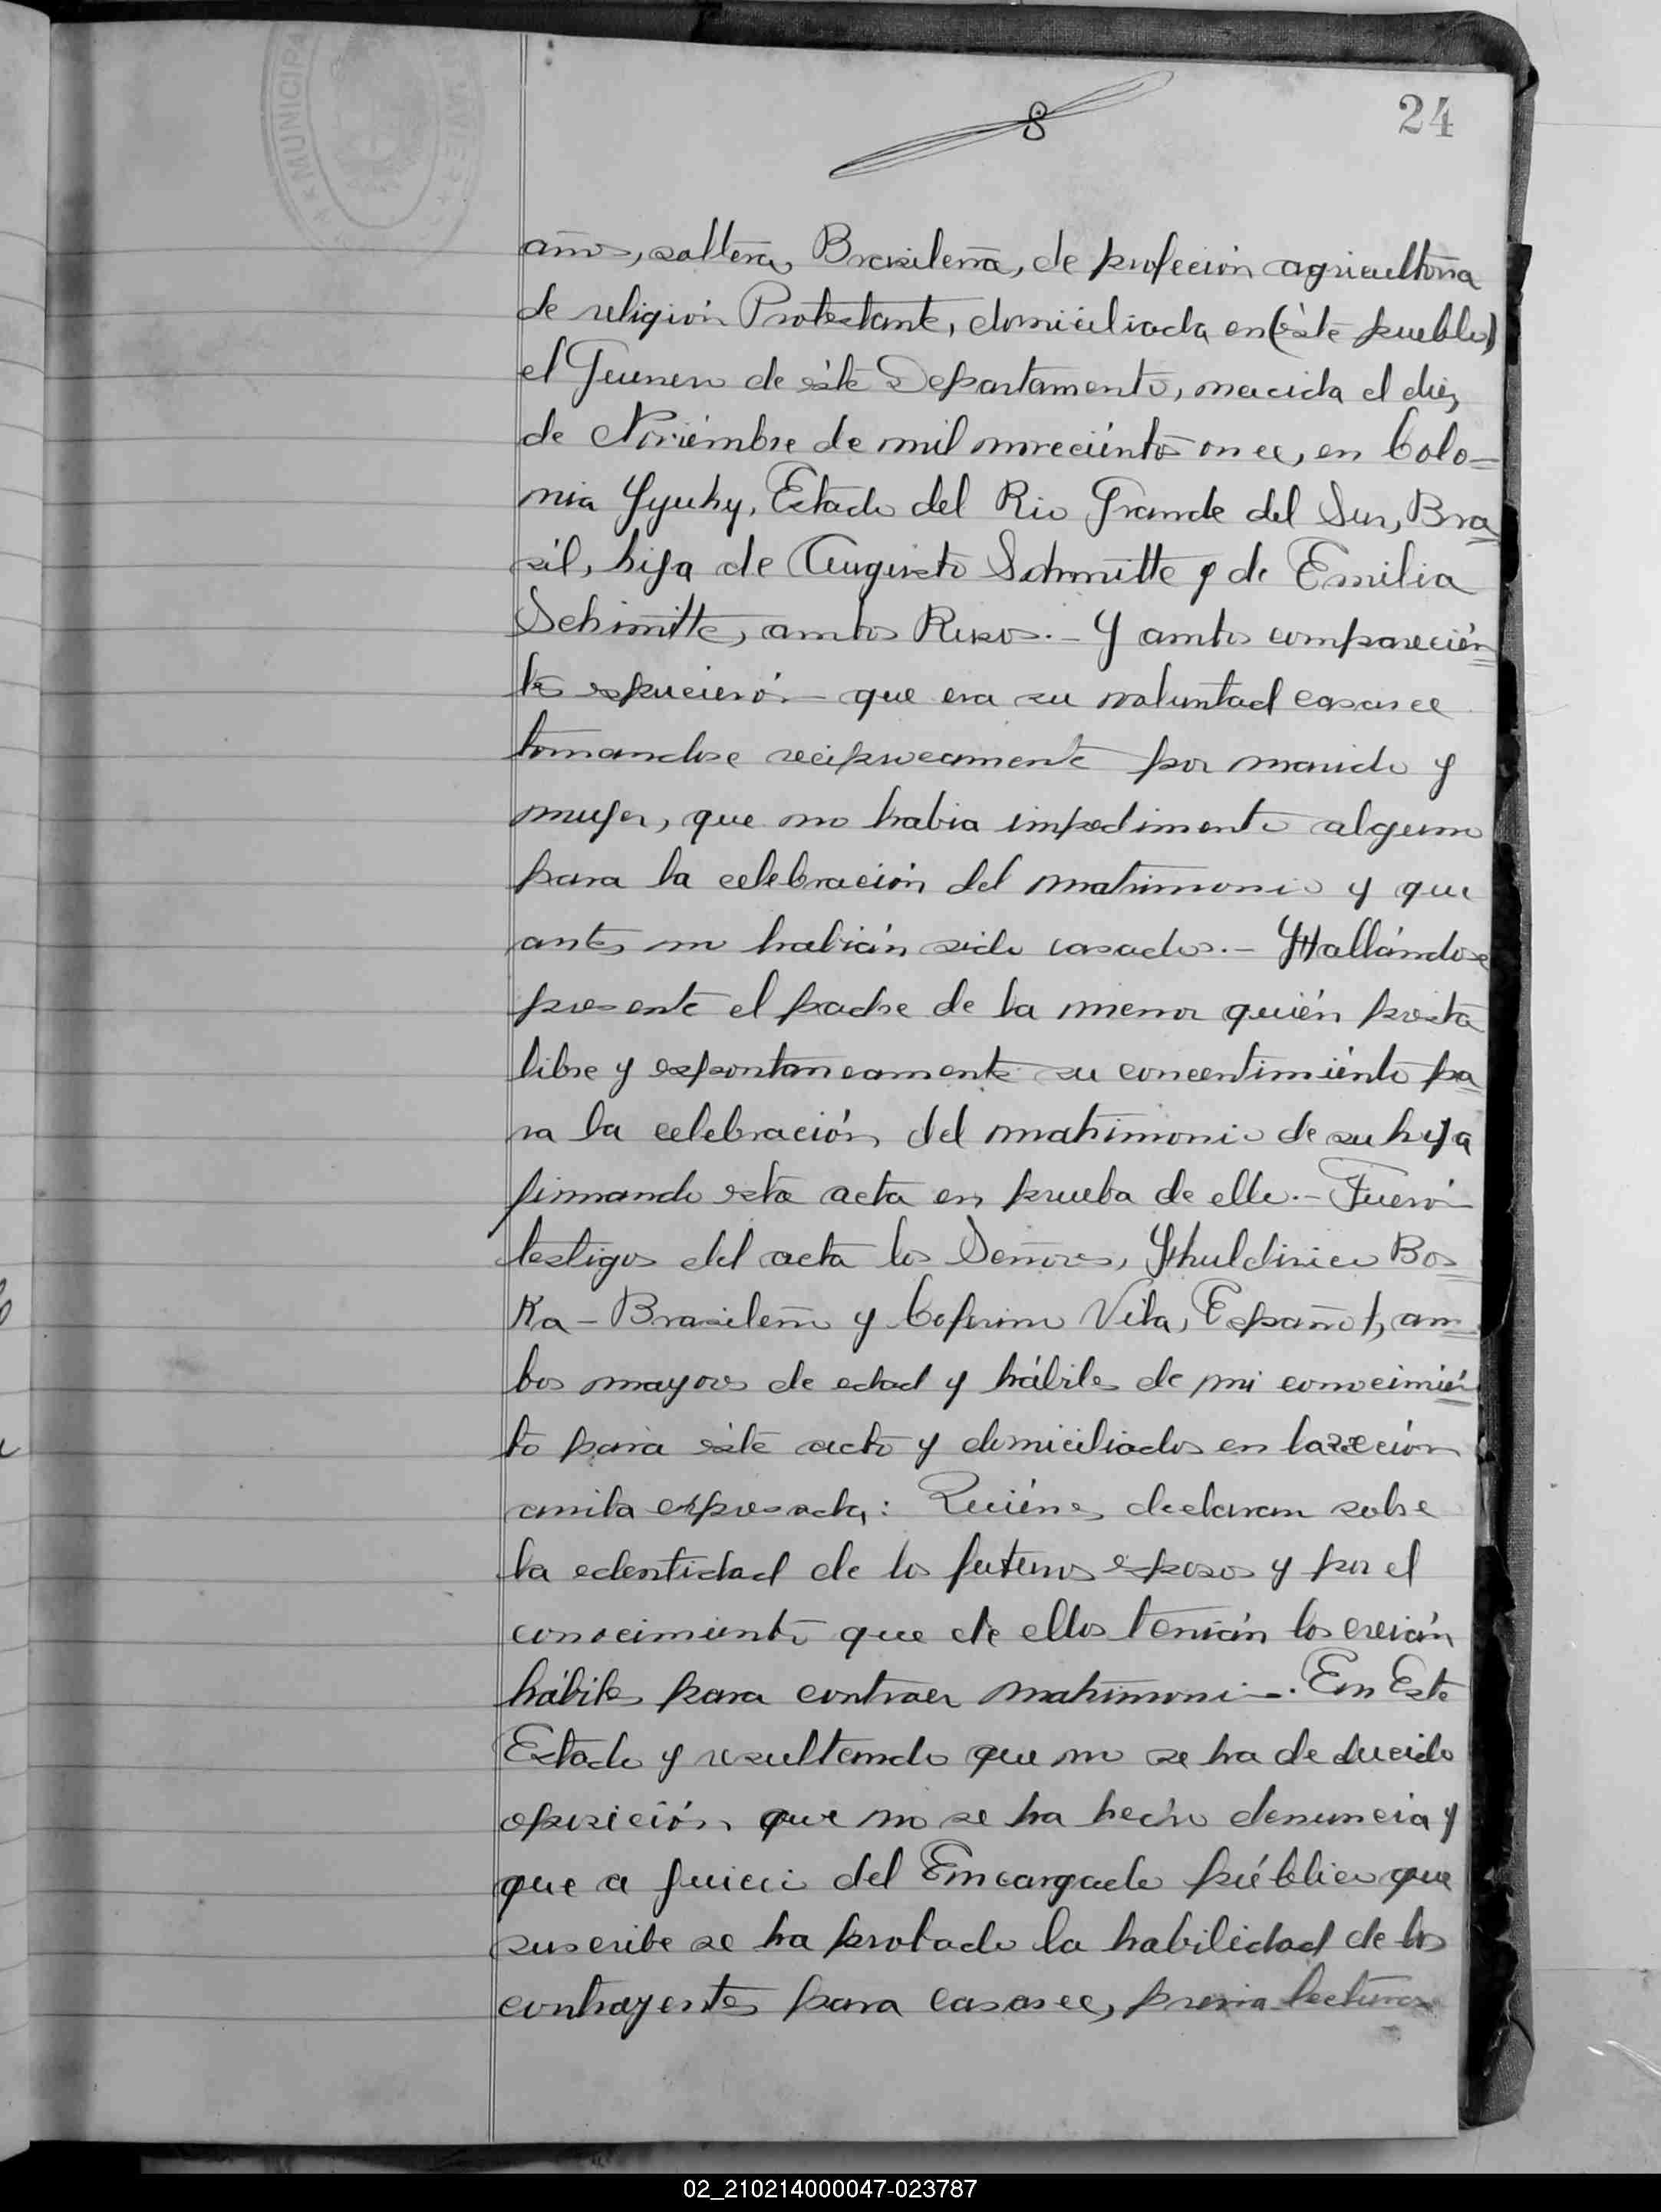 MUNICIPA
8
24
años, soltera, Brasileña, de profeción agricultora
de religión Protestante, domiciliada en (éste pueblo)
el Guerrero de éste Departamento, nacida el diez
de Noviémbre de mil noveciéntos once, en Colo=
nia Yyuhy, Estado del Rio Grande del Sur, Bra=
sil, hija de Augusto Schmitte y de Emilia
Schimitte, ambos Rusos.- Y ambos compareción=
tes espucierón - que era su voluntad casarce
tomandose reciprocamente por marido y
mujer, que no habia impedimento alguno
para la celebración del matrimonio y que
antes no habián sido casados.- Y Hallándose
presente el padre de la menor quién presta
libre y espontaneamente su concentimiénto pa=
ra la celebración del matrimonio de su hija
firmando esta acta en prueba de ello.- Fuerón
testigos del acta los Señores, Bos=
Ka - Brasileño y Ceferino Vila, Español, am=
bos mayores de edad y hábiles de mi conocimién=
to para éste acto y domiciliados en la seción
arriba expresada,: Quiénes declaran sobre
la edentidad de los futuros esposos y por el
conocimiento que de ellos tenián los creián
hábiles para contraer matrimonio-. En Este
Estado y resultando que no se ha deducido
oposición, que no se ha hecho denuncia y
que a juicio del Encargado público que
suscribe se ha probado la habilidad de los
contrayentes para casarce, previa lectura
02_210214000047-023787